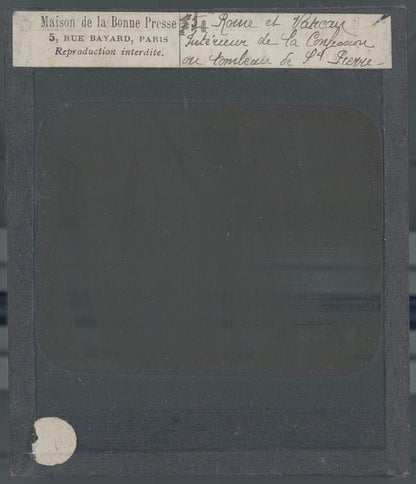 Maison de la Bonne Presse
5, RUE BAYARD, PARIS
Reproduction interdite.
Rome et Vatican
Intérieur de la Confession
ou tombeau de St Pierre